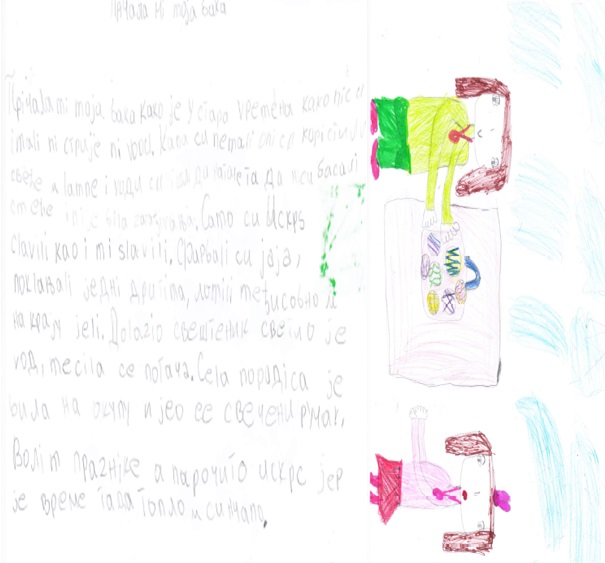 моја бака
Причала ми моја бака како је у стара времена како нису
имали ни струје ни воде. Када су немали они су користили
свеће и лампе и ишли су
Само су Ускрс
славили као и ми славили. Фарбали су јаја,
поклањали једни другима, међусобно и
на крају јели. Долазио свештеник светио је
вод, месила се погача. Цела породица је
била на окупу и јео се свечени ручак.
Волим празнике а нарочито ускрс јер
је време тада топло и сунчано.